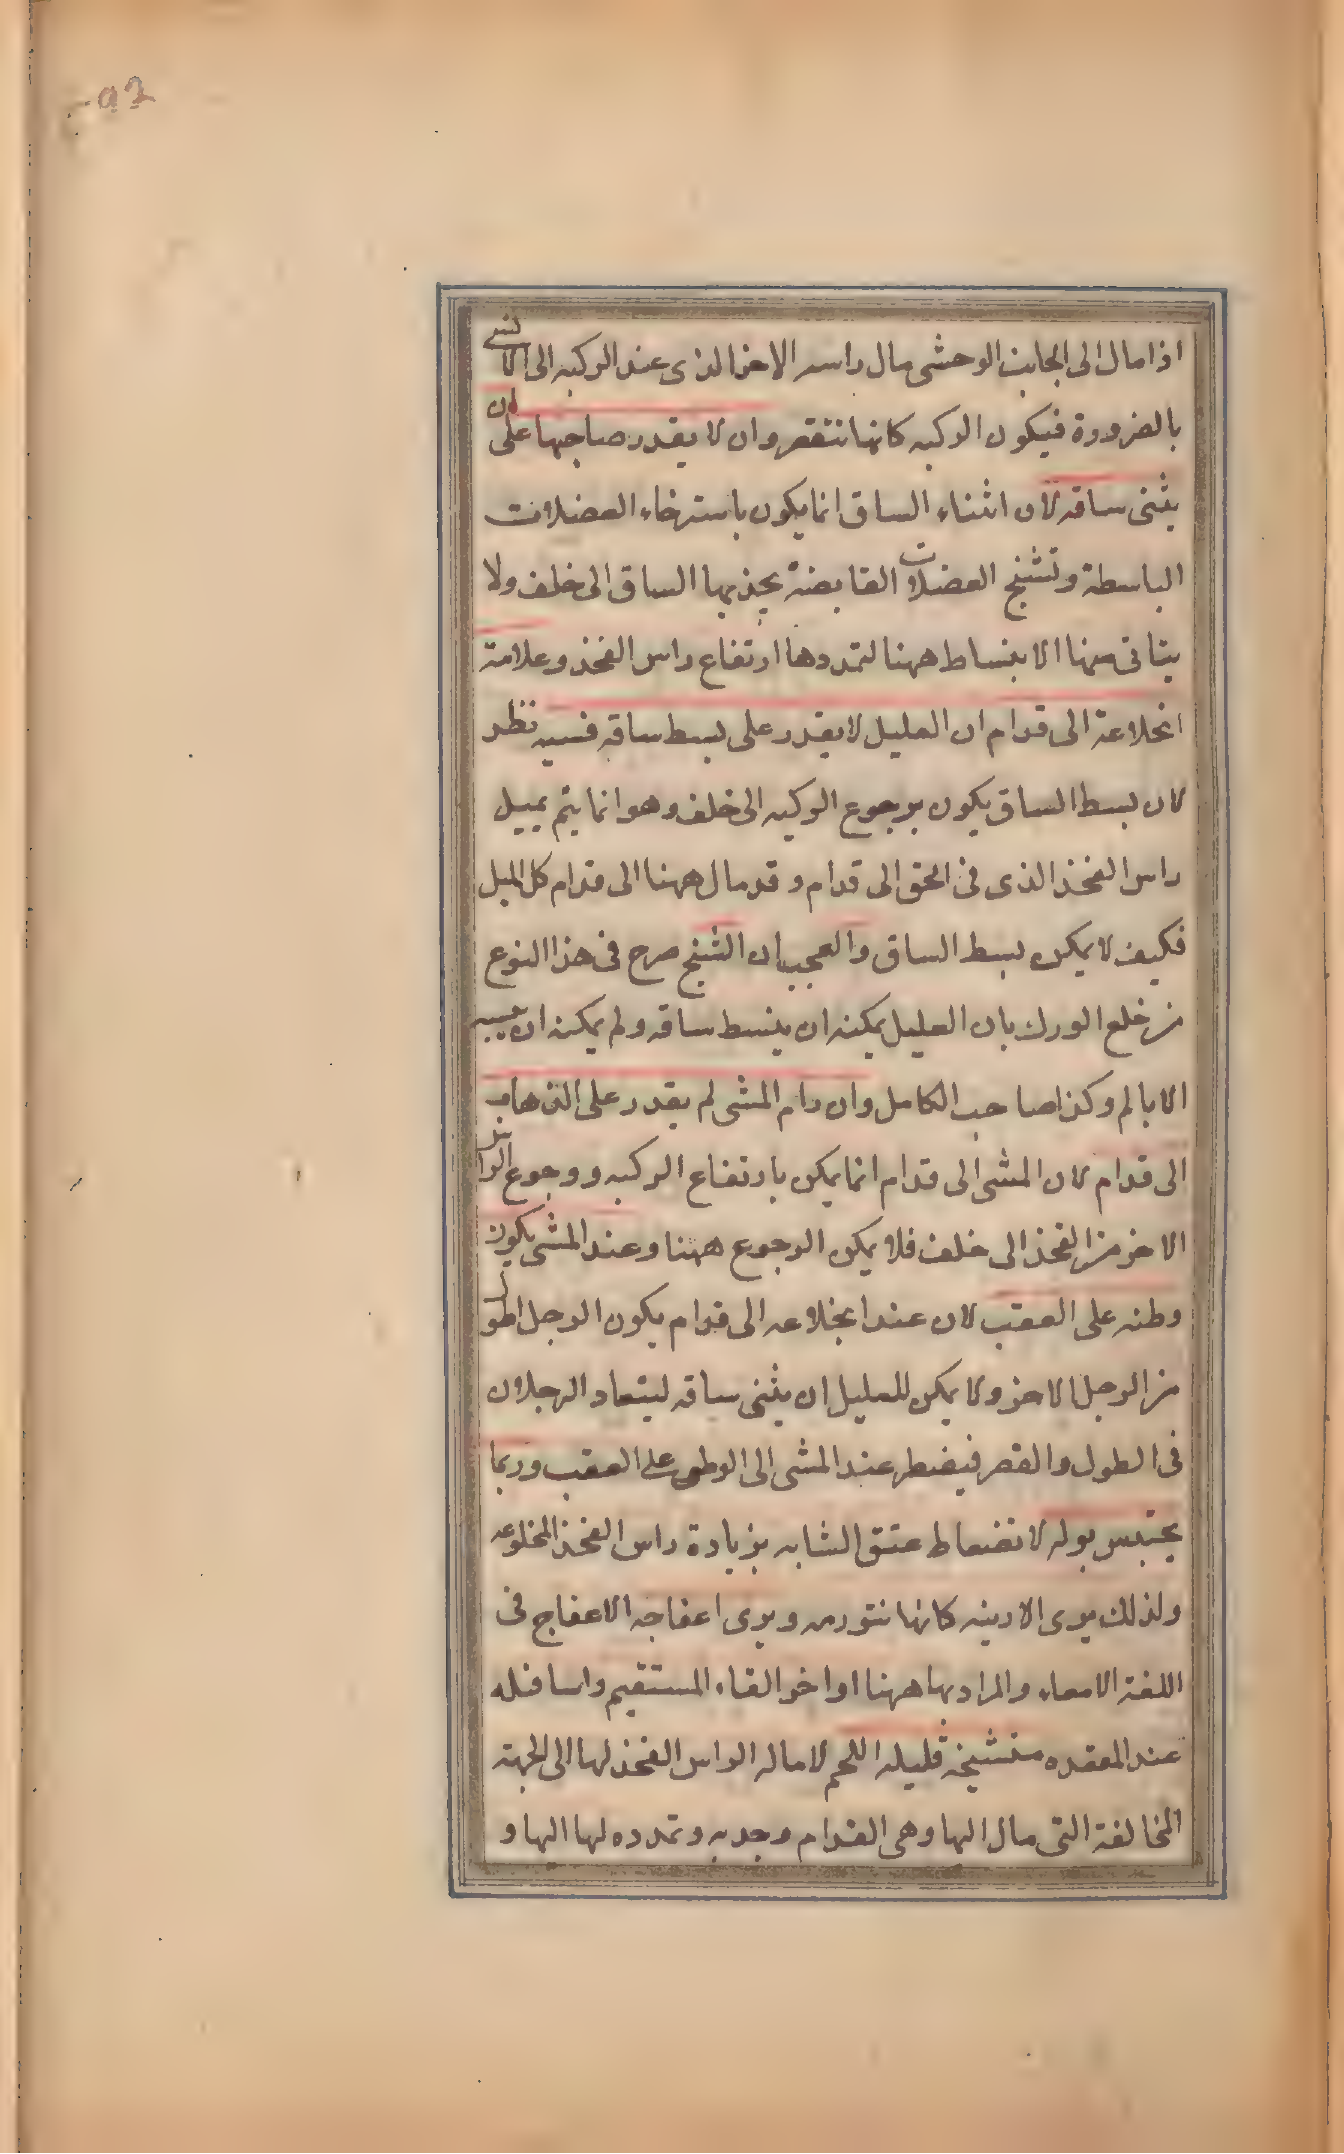 اذا مال الى الجانب الوحشى مال راسه الاخر الذى عند الركبه الى الانسى
بالضرورة فيكون الركبه كانها تتقعر وان لا يقدر صاحبها على ان
يثنى ساقه لان انثناء الساق انما يكون باسترخاء العضلات
الباسطة وتشنج العضلات القابضة يجذبها الساق الى خلف ولا
يتاتى منها الانبساط ههنا لتمددها ارتفاع راس الفخذ وعلامة
انخلاعة الى قدام ان العليل لا يقدر على بسط ساقه فسيه نظر
لان بسط الساق يكون برجوع الركبه الى خلف وهو انما يتم بميل
راس الفخذ الذى فى الحق الى قدام و قد مال ههنا الى قدام كل الميل
فكيف لا يمكن بسط الساق والعجب ان الشيخ صرح فى هذا النوع
من خلع الورك بان العليل يمكنه ان ينبسط ساقه ولم يمكنه ان يثنيه
الا بالم وكذا صاحب الكامل وان رام المشى لم يقدر على الذهاب
الى قدام لان المشى الى قدام انما يمكن بارتفاع الركبه ورجوع الراس
الاخر من الفخذ الى خلف فلا يمكن الرجوع ههنا وعند المشى يكون
وطئه على العقب لان عند انخلاعه الى قدام يكون الرجل اطول
من الرجل الاخر ولا يمكن للعليل ان يثنى ساقه ليتعاد الرجلان
فى الطول والقصر فيضطر عند المشى الى الوطى على العقب وربما
يحتبس بوله لانضغاط عنق المثانه بزيادة راس الفخذ المخلوعه
ولذلك يرى الاربيه كانها تتورم ويرى اعفاجه الاعفاج فى
اللغة الامعاء والمراد بها ههنا اواخر القاء المستقيم واسافله
عند المقعده متشنجة قليله اللحم لامالة الراس الفخذ لها الى الجهة
المخالفة التى مال اليها وهى القدام وجذبه وتمدده لها اليها و